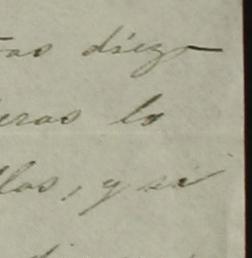 tas diez
eras lo
llos, y si